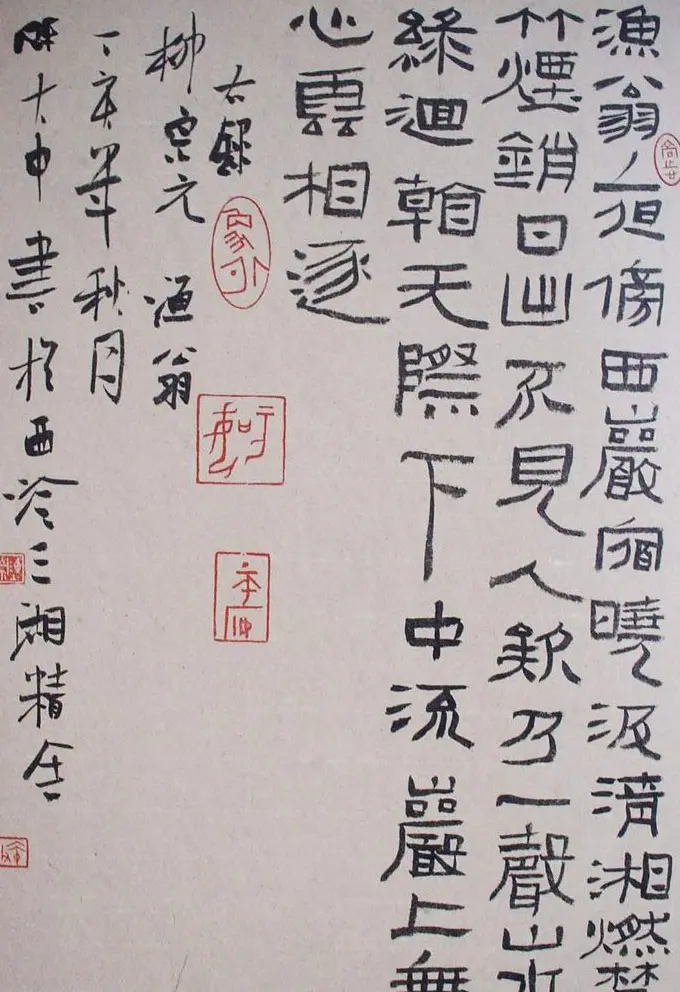 漁翁夜傍西巖宿曉汲清湘燃楚
竹煙銷日出不見人欸乃一聲山水
緑迴看天際下中流巖上無
心雲相逐
右録
柳宗元漁翁
丁亥年秋月
陳大中書於西泠三湘精舍